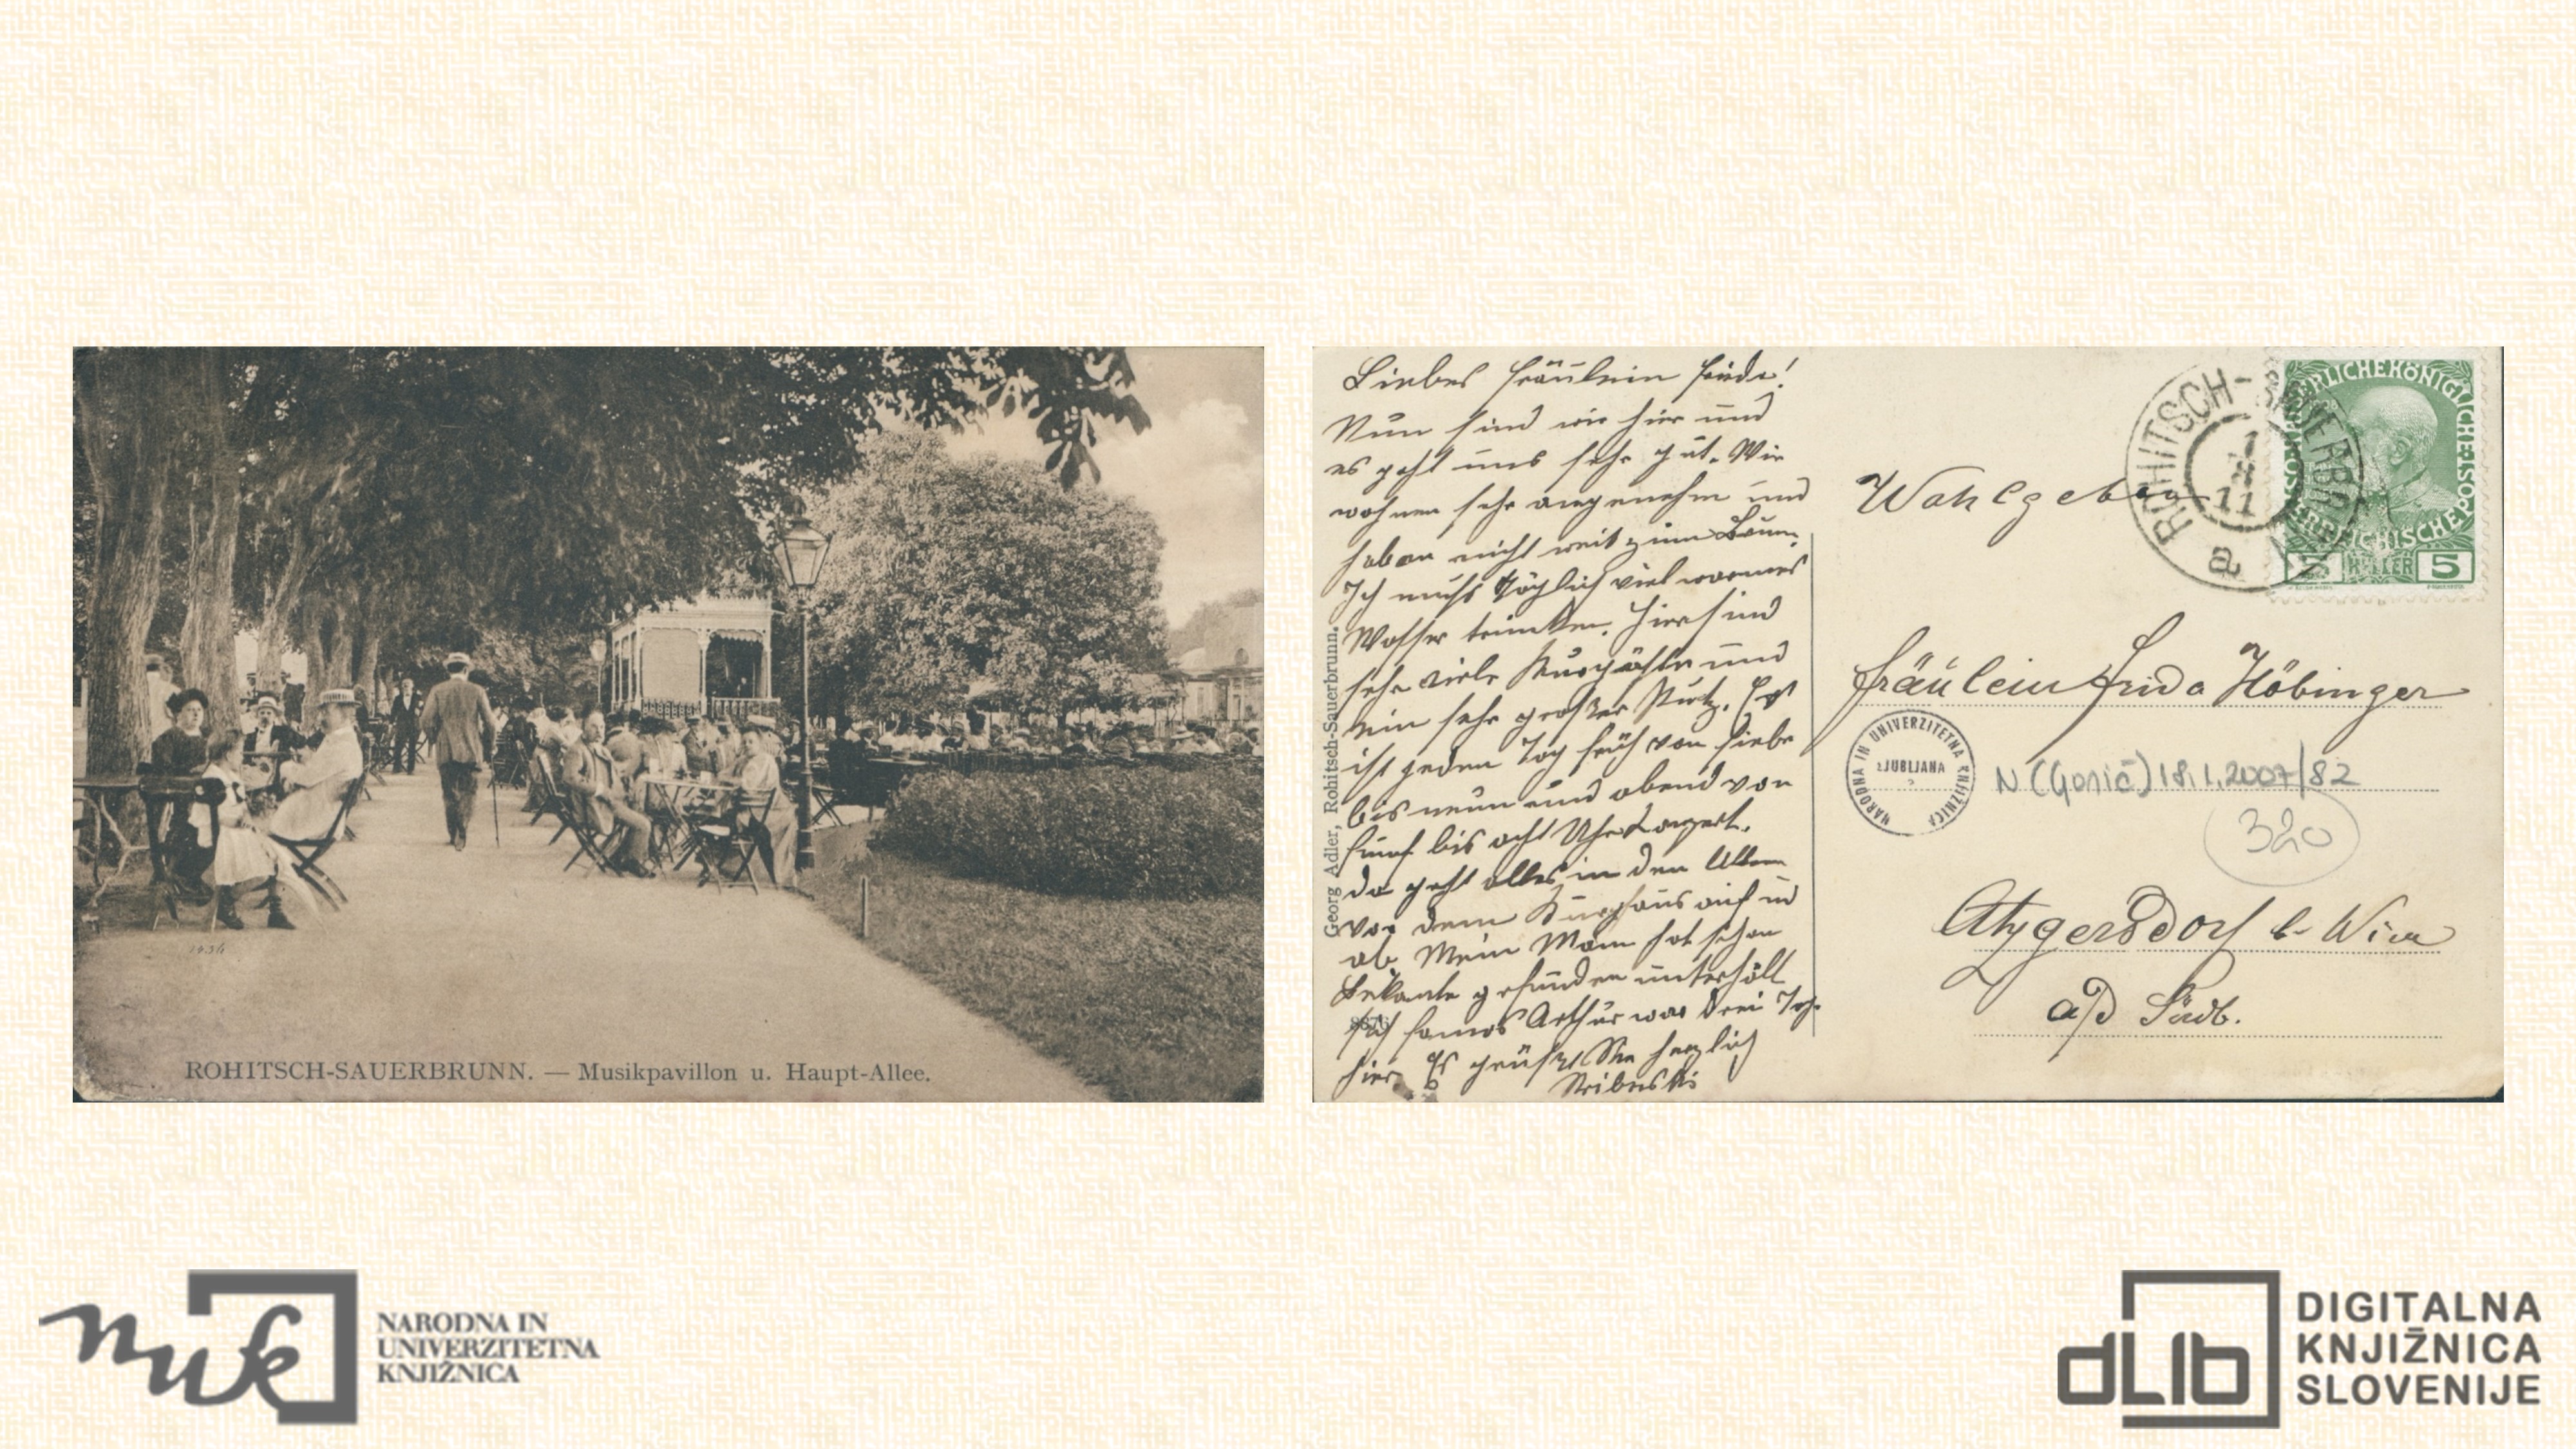 ROHITSCH-SAUERBRUNN. — Musikpavillon u. Haupt-Allee.
Liebes Fräulein Frida!
Nun sind wir hier und
es geht uns sehr gut. Wir
wohnen sehr angenehm und
haben nicht weit zum Brunn.
Ich muß täglich viel warmes
Wasser trinken. Hier sind
sehr viele Kurgäste und
ein sehr großer Putz. Es
ist jeden Tag früh von siebe
bis neun und abend von
fünf bis acht Uhr Konzert.
da geht alles in den Alleen
vor dem Kurhaus auf und
ab. Mein Mann hat schon
Bekante gefunden unterhält
sich famos Arthur war drei Tag.
hier. Es grüßt Sie herzlich
Georg Adler, Rohitsch-Sauerbrunn.
ROHITSCH-SAUERBRUNN
11
a
KAISERLICHE KÖNIGLICHE ÖSTERREICHISCHE POST
5 HELLER 5
Wohlgeboren
Fräulein Frida Höbinger
NARODNA IN UNIVERZITETNA KNJIŽNICA
LJUBLJANA
N (Gonič) 18.1.2007/82
320
Atzgersdorf b. Wien
a/d Südb.
nuk
NARODNA IN
UNIVERZITETNA
KNJIŽNICA
dLib
DIGITALNA
KNJIŽNICA
SLOVENIJE